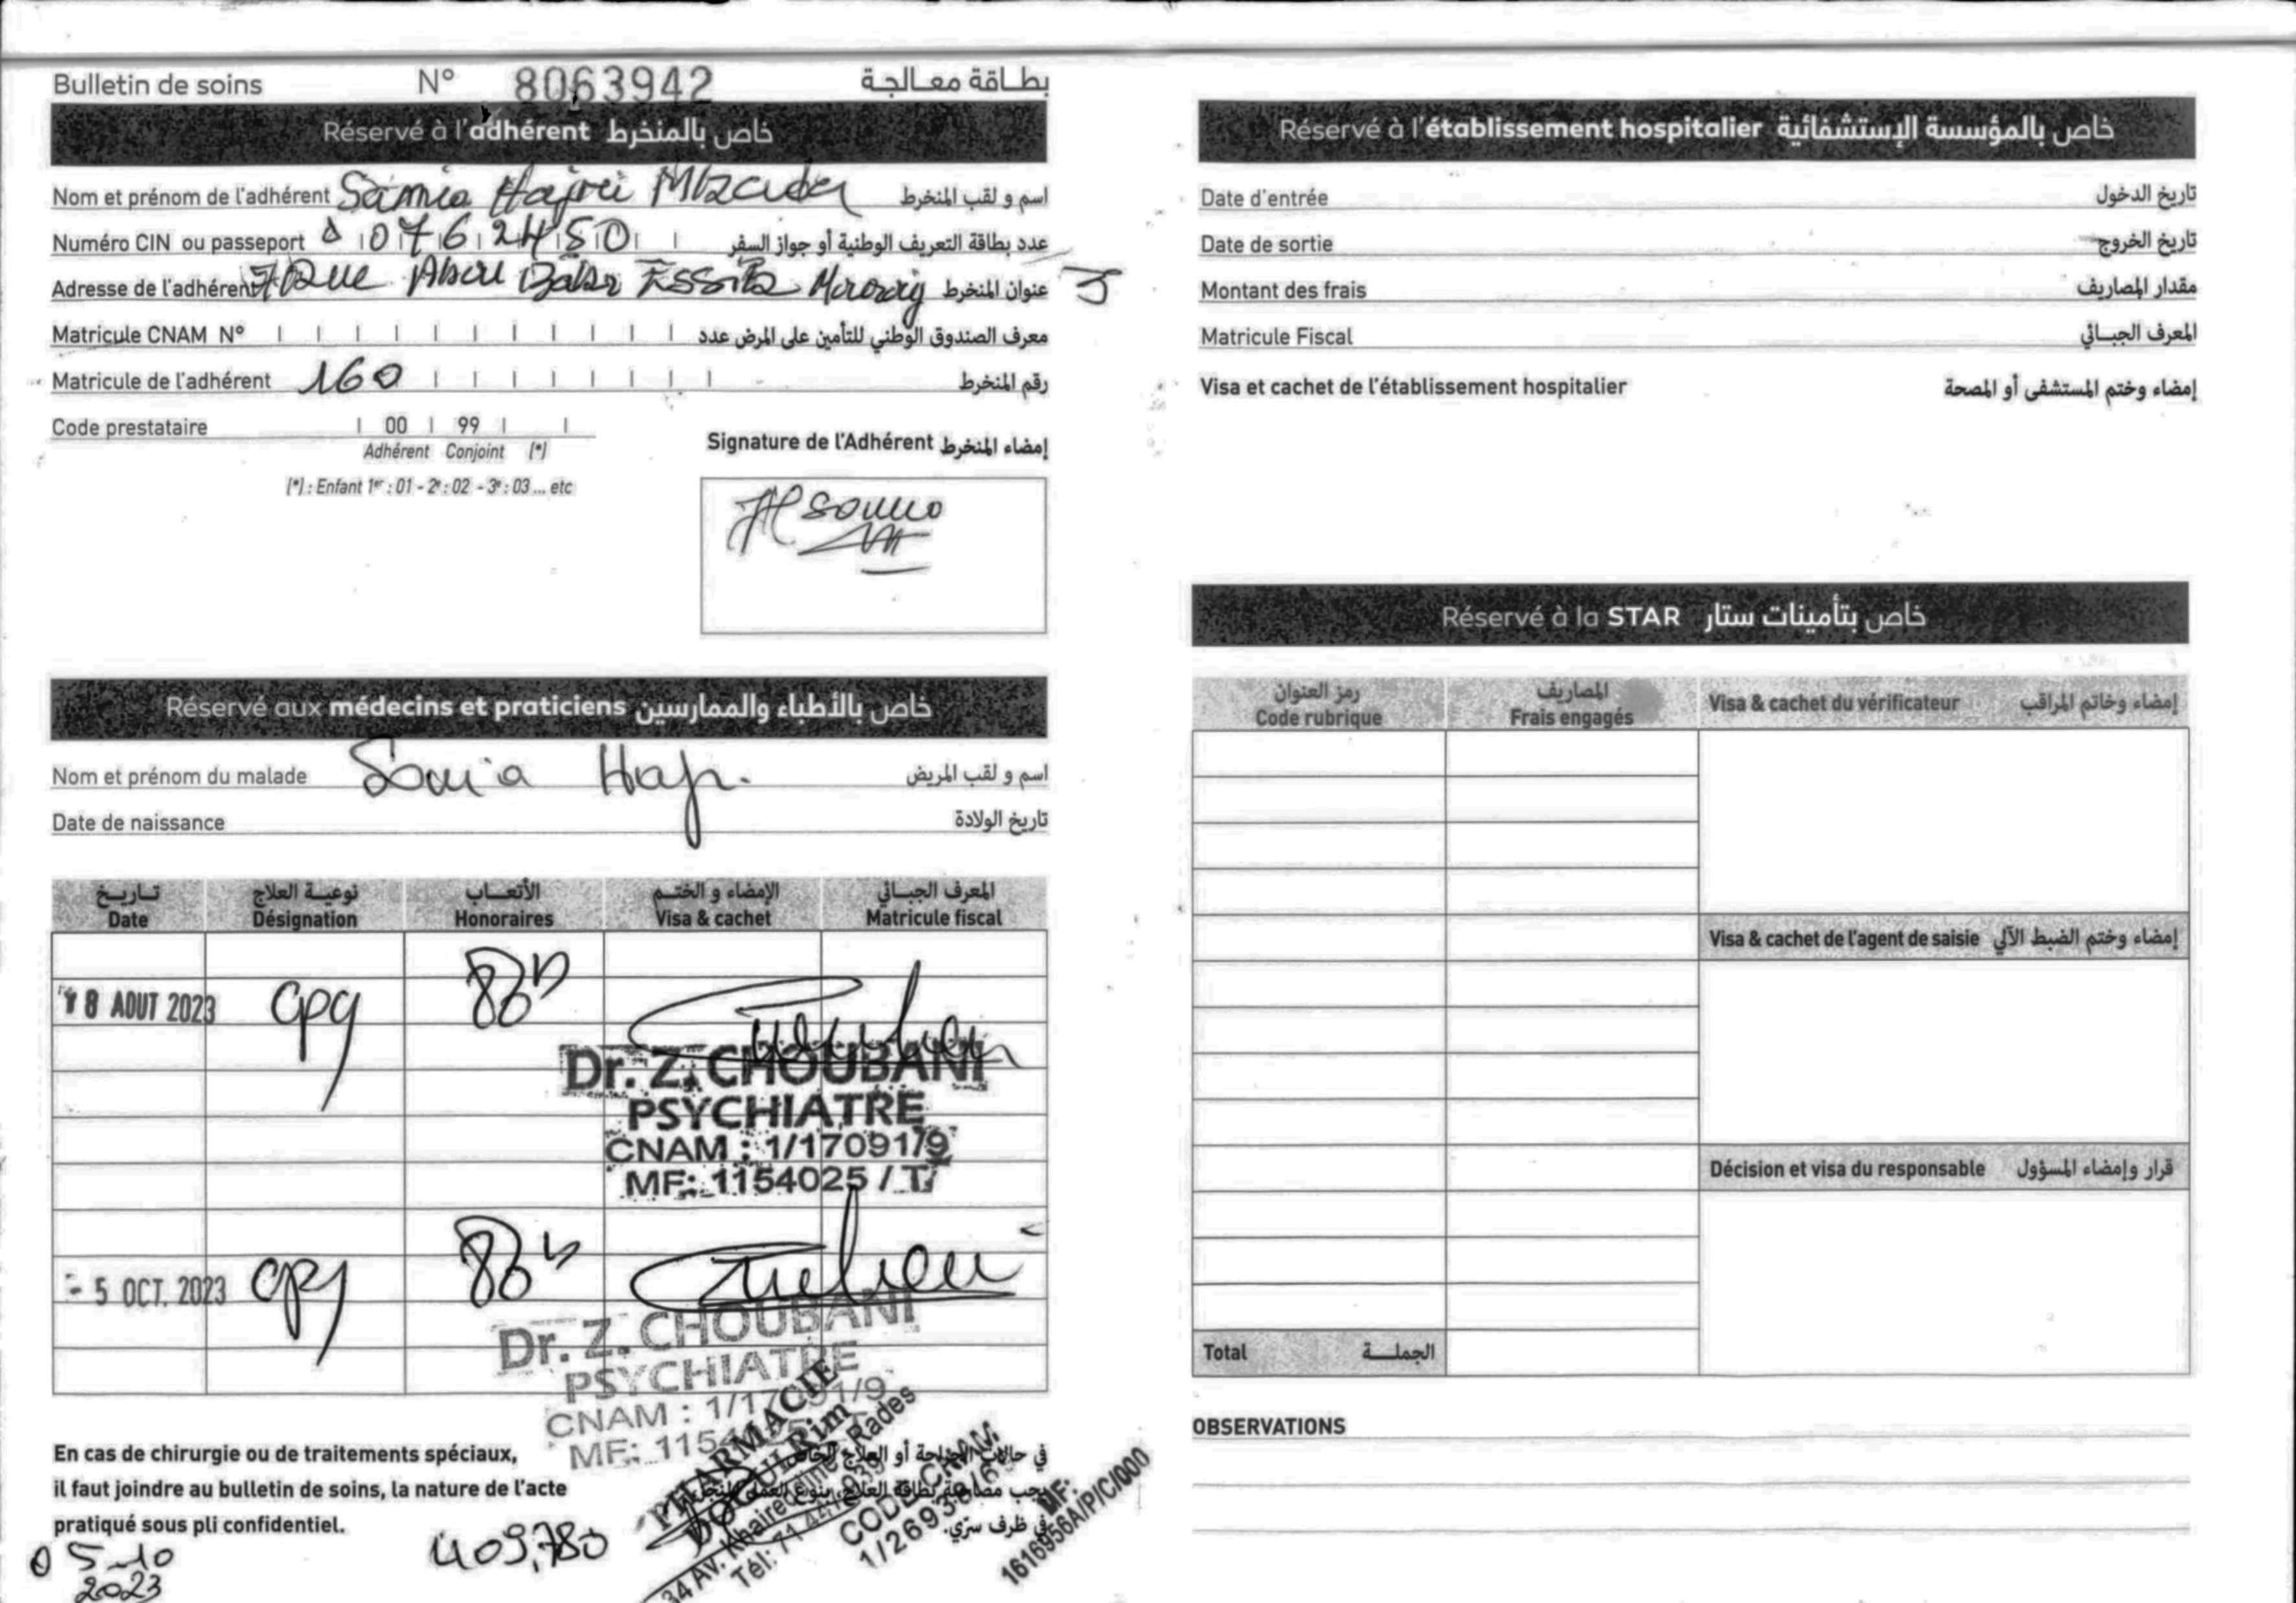 Bulletin de soins N° 8063942 بطاقة معالجة
Réservé à l'adhérent خاص بالمنخرط
Nom et prénom de l'adhérent Samia Hajri اسم و لقب المنخرط
Numéro CIN ou passeport 07624450 عدد بطاقة التعريف الوطنية أو جواز السفر
Adresse de l'adhérent 7 Rue Abou Bakr Essidik Mourouj عنوان المنخرط
Matricule CNAM N° معرف الصندوق الوطني للتأمين على المرض عدد
Matricule de l'adhérent 160 رقم المنخرط
Code prestataire 00 99
Adhérent Conjoint (*)
(*) : Enfant 1er : 01 - 2e : 02 - 3e : 03 ... etc
Signature de l'Adhérent إمضاء المنخرط
Réservé aux médecins et praticiens خاص بالأطباء والممارسين
Nom et prénom du malade Samia Haj. اسم و لقب المريض
Date de naissance تاريخ الولادة
تاريخ نوعية العلاج الأتعاب الإمضاء و الختم المعرف الجبائي
Date Désignation Honoraires Visa & cachet Matricule fiscal
18 AOUT 2023 cpy
Dr. Z. CHOUBANI
PSYCHIATRE
CNAM : 1/17091/9
MF: 1154025 / T/
- 5 OCT. 2023 cpy
Dr. Z. CHOUBANI
PSYCHIATRE
CNAM : 1/17091/9
MF: 1154
En cas de chirurgie ou de traitements spéciaux,
il faut joindre au bulletin de soins, la nature de l'acte
pratiqué sous pli confidentiel.
في حالات الجراحة أو العلاج الخاص
في ظرف سرّي.
05-10
2023
409,780
PHARMACIE
34 Av. Khaireddine - Rades
Tél: 71
CODE CNAM
1/26938/6
MF:
1616956A/P/C/000
Réservé à l'établissement hospitalier خاص بالمؤسسة الإستشفائية
Date d'entrée تاريخ الدخول
Date de sortie تاريخ الخروج
Montant des frais مقدار المصاريف
Matricule Fiscal المعرف الجبائي
Visa et cachet de l'établissement hospitalier إمضاء وختم المستشفى أو المصحة
Réservé à la STAR خاص بتأمينات ستار
رمز العنوان المصاريف
Code rubrique Frais engagés Visa & cachet du vérificateur إمضاء وخاتم المراقب
Visa & cachet de l'agent de saisie إمضاء وختم الضبط الآلي
Décision et visa du responsable قرار وإمضاء المسؤول
Total الجملة
OBSERVATIONS